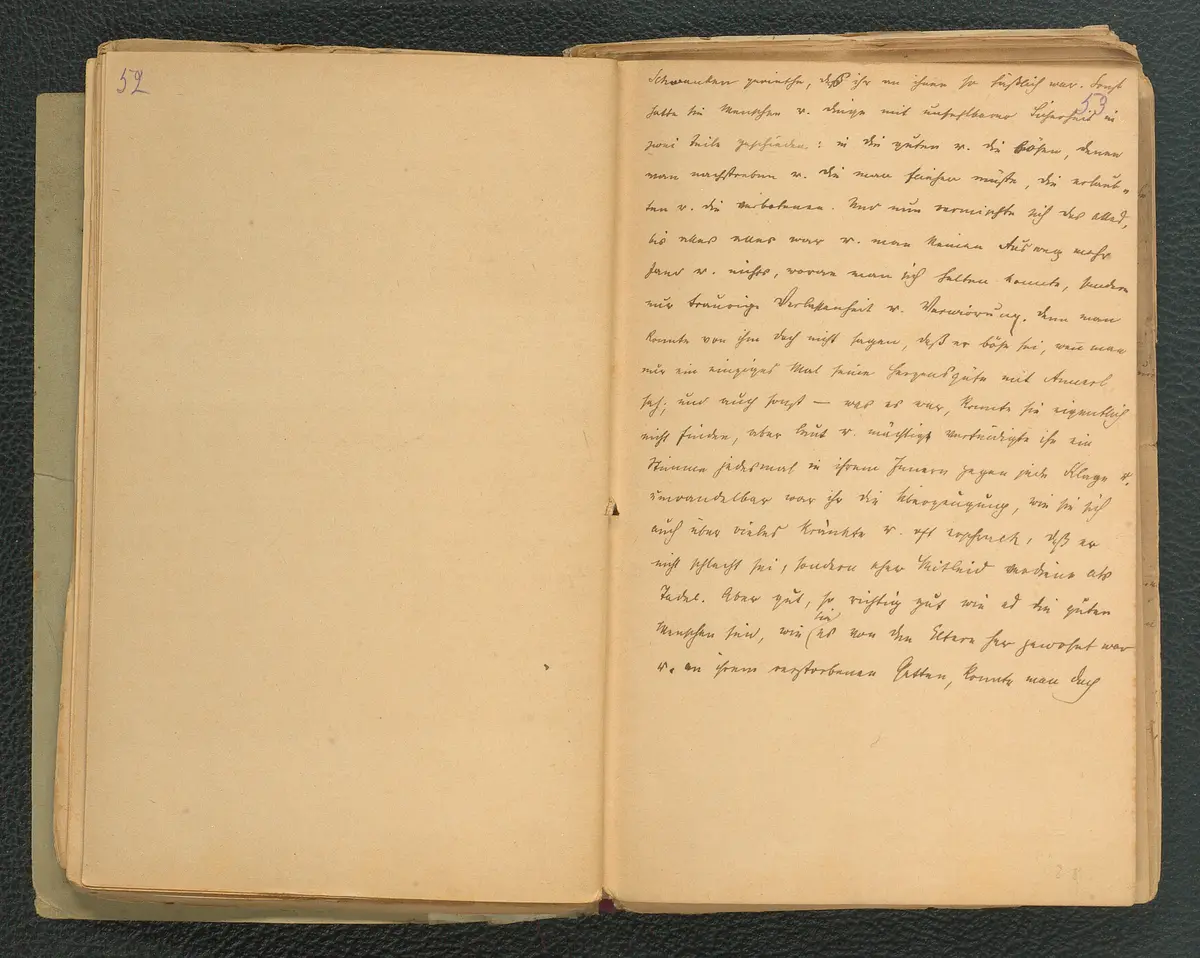 52
53
Schwanken geriethe, daß ihr an ihnen so häßlich war. Sonst
hatte sie Menschen u. Dinge mit unfehlbarer Sicherheit in
zwei Teile geschieden: in die guten u. die bösen, denen
man nachstreben u. die man fliehen müsse, die erlaub-
ten u. die verbotenen. Und nun vermischte sich das alles,
bis alles alles war u. man keinen Ausweg mehr
fand u. nichts, woran man sich halten konnte, sondern
nur traurige Verlassenheit u. Verwirrung. Denn man
konnte von ihm doch nicht sagen, daß er böse sei, wenn man
nur ein einziges Mal seine Herzensgüte mit Annerl
sah; und auch sonst — was es war, konnte sie eigentlich
nicht finden, aber laut u. mächtig verteidigte ihn ein
Stimme jedesmal in ihrem Innern gegen jede Klage u.
unwandelbar war ihr die Überzeugung, wie sie sich
auch über vieles kränkte u. oft erschrak, daß er
nicht schlecht sei, sondern eher Mitleid verdiene als
Tadel. Aber gut, so richtig gut wie es die guten
Menschen sind, wie sie es von den Eltern her gewohnt war
u. an ihrem verstorbenen Gatten, konnte man doch